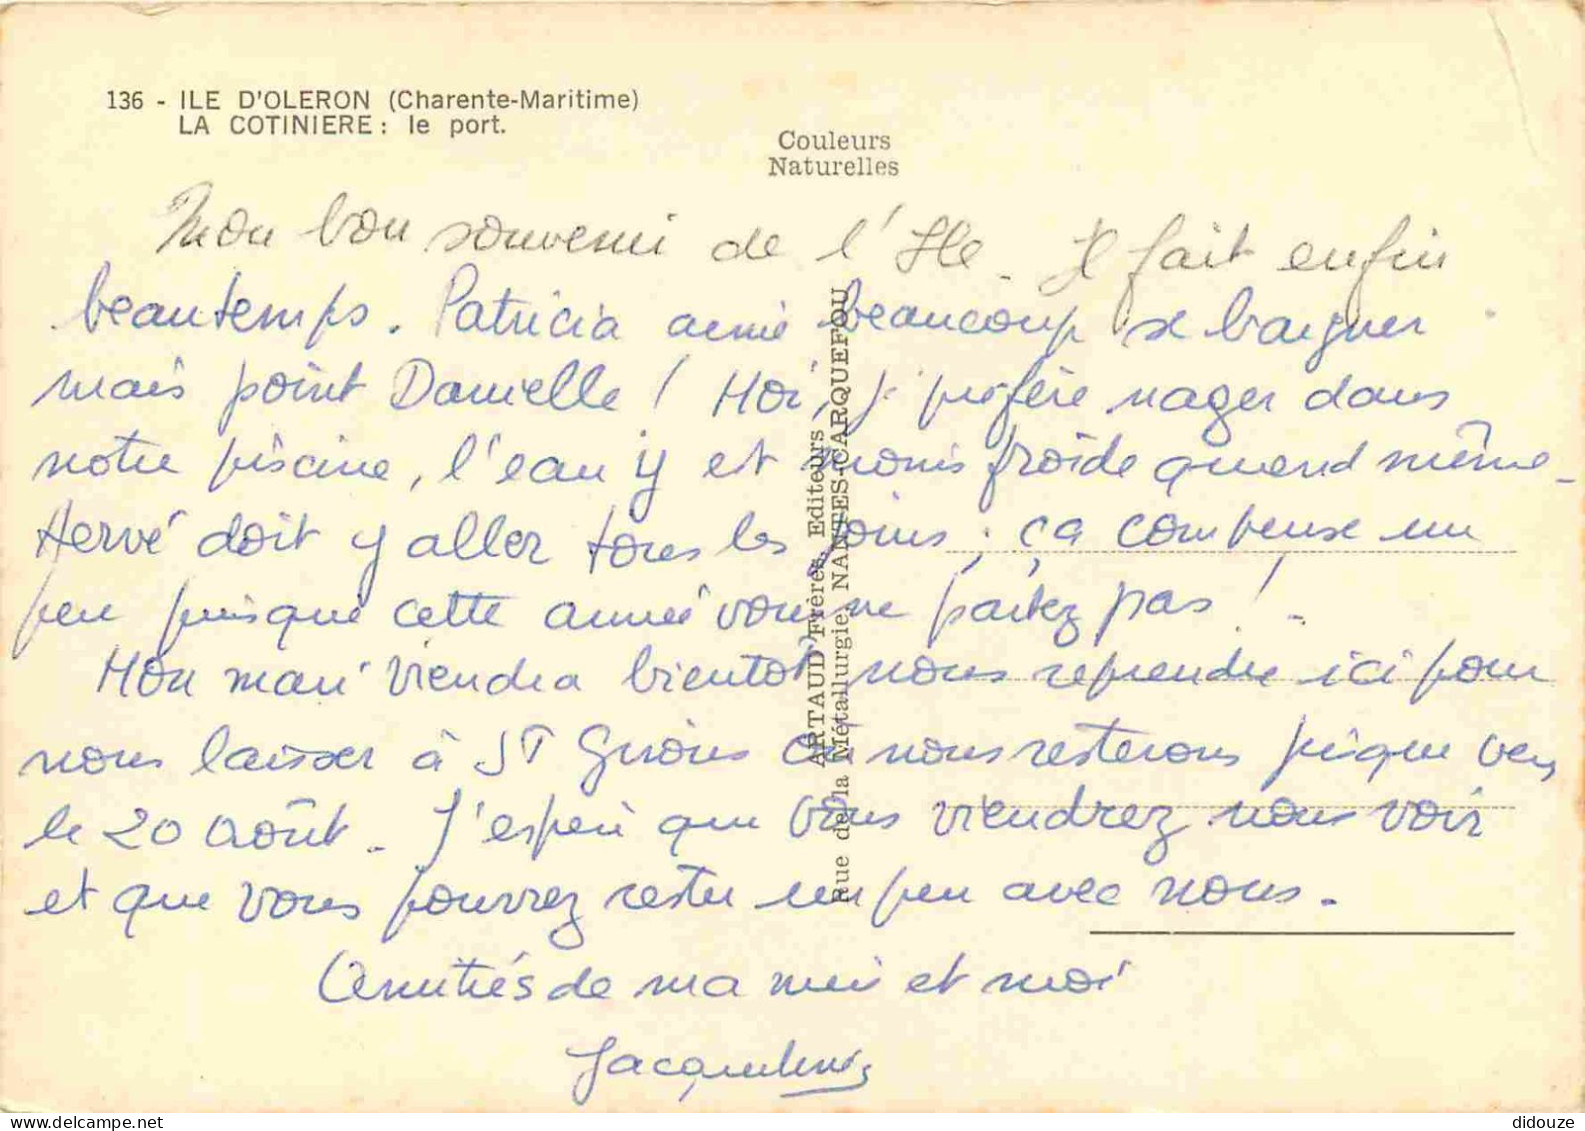 136 - ILE D'OLERON (Charente-Maritime)
LA COTINIERE : le port.
Couleurs
Naturelles
Mon bon souvenir de l'Ile. Il fait enfin
beau temps. Patricia aime beaucoup se baigner
mais point Danielle ! Moi, je préfère nager dans
notre piscine, l'eau y est moins froide quand même -
Hervé doit y aller tous les jours ; ça compense un
peu puisque cette année vous ne partez pas ! -
Mon mari viendra bientôt nous reprendre ici pour
nous laisser à St Girons où nous resterons jusque vers
le 20 Août. J'espère que vous viendrez nous voir
et que vous pourrez rester un peu avec nous.
Amitiés de ma mère et moi
Jacqueline
ARTAUD Frères, Editeurs
Rue de la Métallurgie, NANTES-CARQUEFOU
delcampe.net
didouze